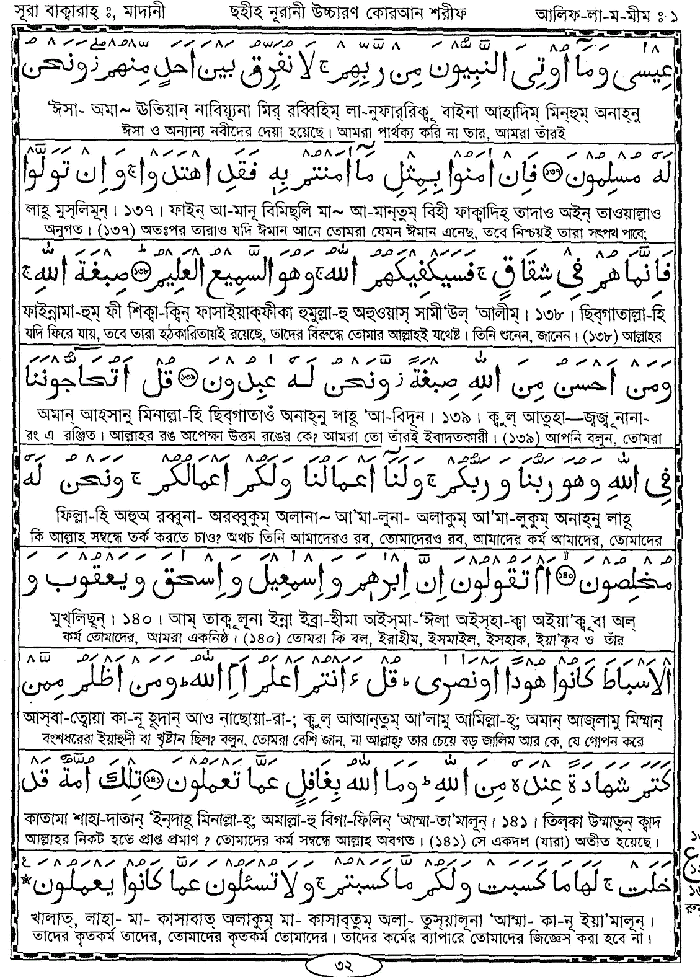 সূরা বাক্বারাহ্ ঃ, মাদানী ছহীহ্ নূরানী উচ্চারণ কোরআন শরীফ আলিফ-লা-ম-মীম ঃ ১
عِيْسٰى وَمَآ اُوْتِىَ النَّبِيُّوْنَ مِنْ رَّبِّهِمْ ۚ لَا نُفَرِّقُ بَيْنَ اَحَدٍ مِّنْهُمْ ۫ وَنَحْنُ
'ঈসা- অমা~ ঊতিয়ান্ নাবিয়্যূনা মির্ রব্বিহিম্ লা-নুফার্রিকু বাইনা আহাদিম্ মিন্হুম্ অনাহ্নু
ঈসা ও অন্যান্য নবীদের দেয়া হয়েছে। আমরা পার্থক্য করি না তার, আমরা তাঁরই
لَهٗ مُسْلِمُوْنَ ﴿١٣٦﴾ فَاِنْ اٰمَنُوْا بِمِثْلِ مَآ اٰمَنْتُمْ بِهٖ فَقَدِ اهْتَدَوْا ۚ وَاِنْ تَوَلَّوْا
লাহূ মুস্লিমূন্। ১৩৭। ফাইন্ আ-মানূ বিমিছ্লি মা~ আ-মান্তুম্ বিহী ফাক্বাদিহ্ তাদাও অইন্ তাওয়াল্লাও
অনুগত। (১৩৭) অতঃপর তারাও যদি ঈমান আনে তোমরা যেমন ঈমান এনেছ, তবে নিশ্চয়ই তারা সৎপথ পাবে;
فَاِنَّمَا هُمْ فِىْ شِقَاقٍ ۚ فَسَيَكْفِيْكَهُمُ اللّٰهُ ۚ وَهُوَ السَّمِيْعُ الْعَلِيْمُ ﴿١٣٧﴾ صِبْغَةَ اللّٰهِ ۚ
ফাইন্নামা-হুম্ ফী শিক্বা-ক্বিন্ ফাসাইয়াক্ফীকা হুমুল্লা-হু অহুওয়াস্ সামী'উল্ 'আলীম্। ১৩৮। ছিব্গাতাল্লা-হি
যদি ফিরে যায়, তবে তারা হঠকারিতায়ই রয়েছে, তাদের বিরুদ্ধে তোমার আল্লাহই যথেষ্ট। তিনি শুনেন, জানেন। (১৩৮) আল্লাহর
وَمَنْ اَحْسَنُ مِنَ اللّٰهِ صِبْغَةً ۫ وَّنَحْنُ لَهٗ عٰبِدُوْنَ ﴿١٣٨﴾ قُلْ اَتُحَآجُّوْنَنَا
অমান্ আহ্সানু মিনাল্লা-হি ছিব্গাতাওঁ অনাহ্নু লাহূ 'আ-বিদূন। ১৩৯। ক্বুল্ আতুহা—জ্জূনানা-
রং এ রঞ্জিত। আল্লাহর রঙ অপেক্ষা উত্তম রঙের কে? আমরা তো তাঁরই ইবাদতকারী। (১৩৯) আপনি বলুন, তোমরা
فِى اللّٰهِ وَهُوَ رَبُّنَا وَرَبُّكُمْ ۚ وَلَنَآ اَعْمَالُنَا وَلَكُمْ اَعْمَالُكُمْ ۚ وَنَحْنُ لَهٗ
ফিল্লা-হি অহুঅ রব্বুনা- অরব্বুকুম্ অলানা~ আ'মা-লুনা- অলাকুম্ আ'মা-লুকুম্ অনাহ্নু লাহূ
কি আল্লাহ সম্বন্ধে তর্ক করতে চাও? অথচ তিনি আমাদেরও রব, তোমাদেরও রব, আমাদের কর্ম আমাদের, তোমাদের
مُخْلِصُوْنَ ﴿١٣٩﴾ اَمْ تَقُوْلُوْنَ اِنَّ اِبْرٰهٖمَ وَاِسْمٰعِيْلَ وَاِسْحٰقَ وَيَعْقُوْبَ وَ
মুখ্লিছূন্। ১৪০। আম্ তাক্বূলূনা ইন্না ইব্রা-হীমা অইস্মা-'ঈলা অইস্হা-ক্বা অইয়া'ক্বূবা অল্
কর্ম তোমাদের, আমরা একনিষ্ঠ। (১৪০) তোমরা কি বল, ইব্রাহীম, ইসমাইল, ইসহাক, ইয়া'কুব ও তাঁর
الْاَسْبَاطَ كَانُوْا هُوْدًا اَوْ نَصٰرٰى ؕ قُلْ ءَاَنْتُمْ اَعْلَمُ اَمِ اللّٰهُ ؕ وَمَنْ اَظْلَمُ مِمَّنْ
আস্বা-ত্বোয়া কা-নূ হূদান্ আও নাছোয়া-রা-; ক্বুল্ আআন্তুম্ আ'লামু আমিল্লা-হ্; অমান্ আজ্লামু মিম্মান্
বংশধরেরা ইয়াহুদী বা খৃষ্টান ছিল? বলুন, তোমরা বেশি জান, না আল্লাহ? তার চেয়ে বড় জালিম আর কে, যে গোপন করে
كَتَمَ شَهَادَةً عِنْدَهٗ مِنَ اللّٰهِ ؕ وَمَا اللّٰهُ بِغَافِلٍ عَمَّا تَعْمَلُوْنَ ﴿١٤٠﴾ تِلْكَ اُمَّةٌ قَدْ
কাতামা শাহা-দাতান্ 'ইন্দাহূ মিনাল্লা-হ্; অমাল্লা-হু বিগা-ফিলিন্ 'আম্মা-তা'মালূন্। ১৪১। তিল্কা উম্মাতুন্ ক্বাদ
আল্লাহর নিকট হতে প্রাপ্ত প্রমাণ? তোমাদের কর্ম সম্বন্ধে আল্লাহ অবগত। (১৪১) সে একদল (যারা) অতীত হয়েছে।
خَلَتْ ۚ لَهَا مَا كَسَبَتْ وَلَكُمْ مَّا كَسَبْتُمْ ۚ وَلَا تُسْـَٔلُوْنَ عَمَّا كَانُوْا يَعْمَلُوْنَ *
খালাত্, লাহা- মা- কাসাবাত্ অলাকুম্ মা- কাসাব্তুম্ অলা- তুস্য়ালূনা 'আম্মা- কা-নূ ইয়া'মালূন্।
তাদের কৃতকর্ম তাদের, তোমাদের কৃতকর্ম তোমাদের। তাদের কর্মের ব্যাপারে তোমাদের জিজ্ঞেস করা হবে না।
৩২